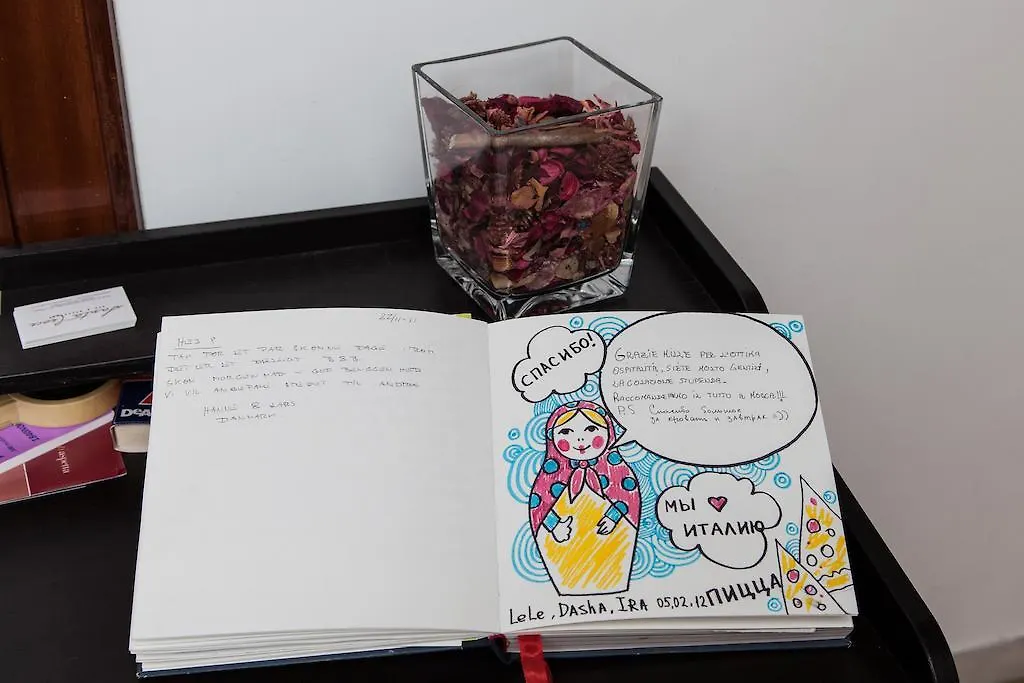 22/11-11
HEJ!
TAK FOR ET PAR SKØNNE DAGE I ROM
DET ER ET DEJLIGT B&B.
SKØN MORGENMAD - GOD BELIGGENHED
VI VIL ANBEFALE STEDET TIL ANDRE
HANNE & LARS
DANMARK
СПАСИБО!
GRAZIE MILLE PER L'OTTIMA
OSPITALITÀ, SIETE MOLTO GENTILI,
LA COLAZIONE STUPENDA.
RACCOMANDEREMO IL TUTTO A MOSCA!!!
P.S Спасибо большое
за кровать и завтрак =))
МЫ ИТАЛИЮ
ПИЦЦА
LeLe, DASHA, IRA 05.02.12